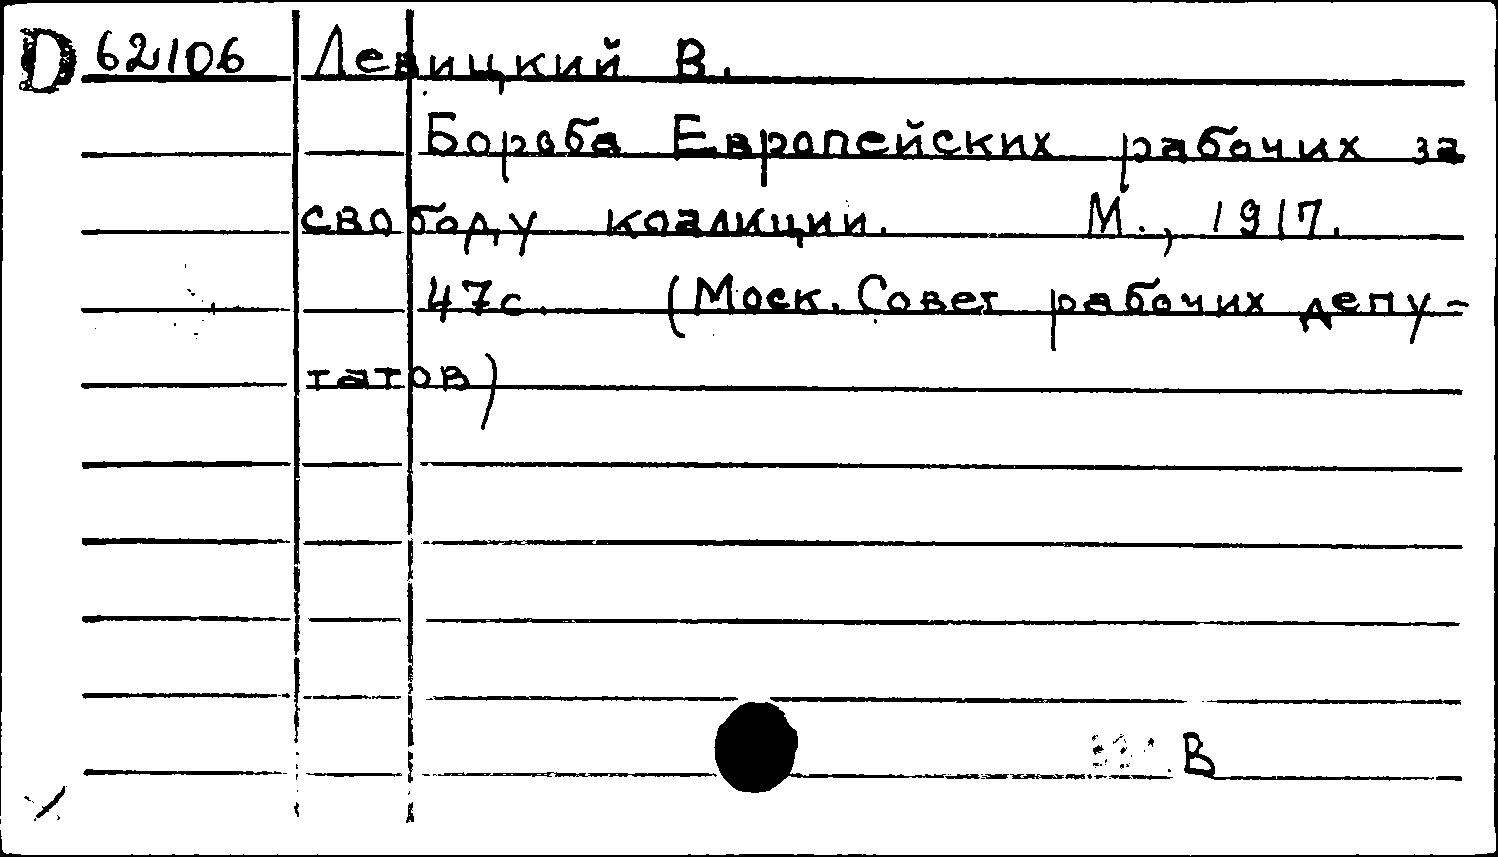 D 62106 Левицкий В.
Борьба Европейских рабочих за
свободу коалиции. М., 1917.
47с. (Моск. Совет рабочих депу-
татов)
В